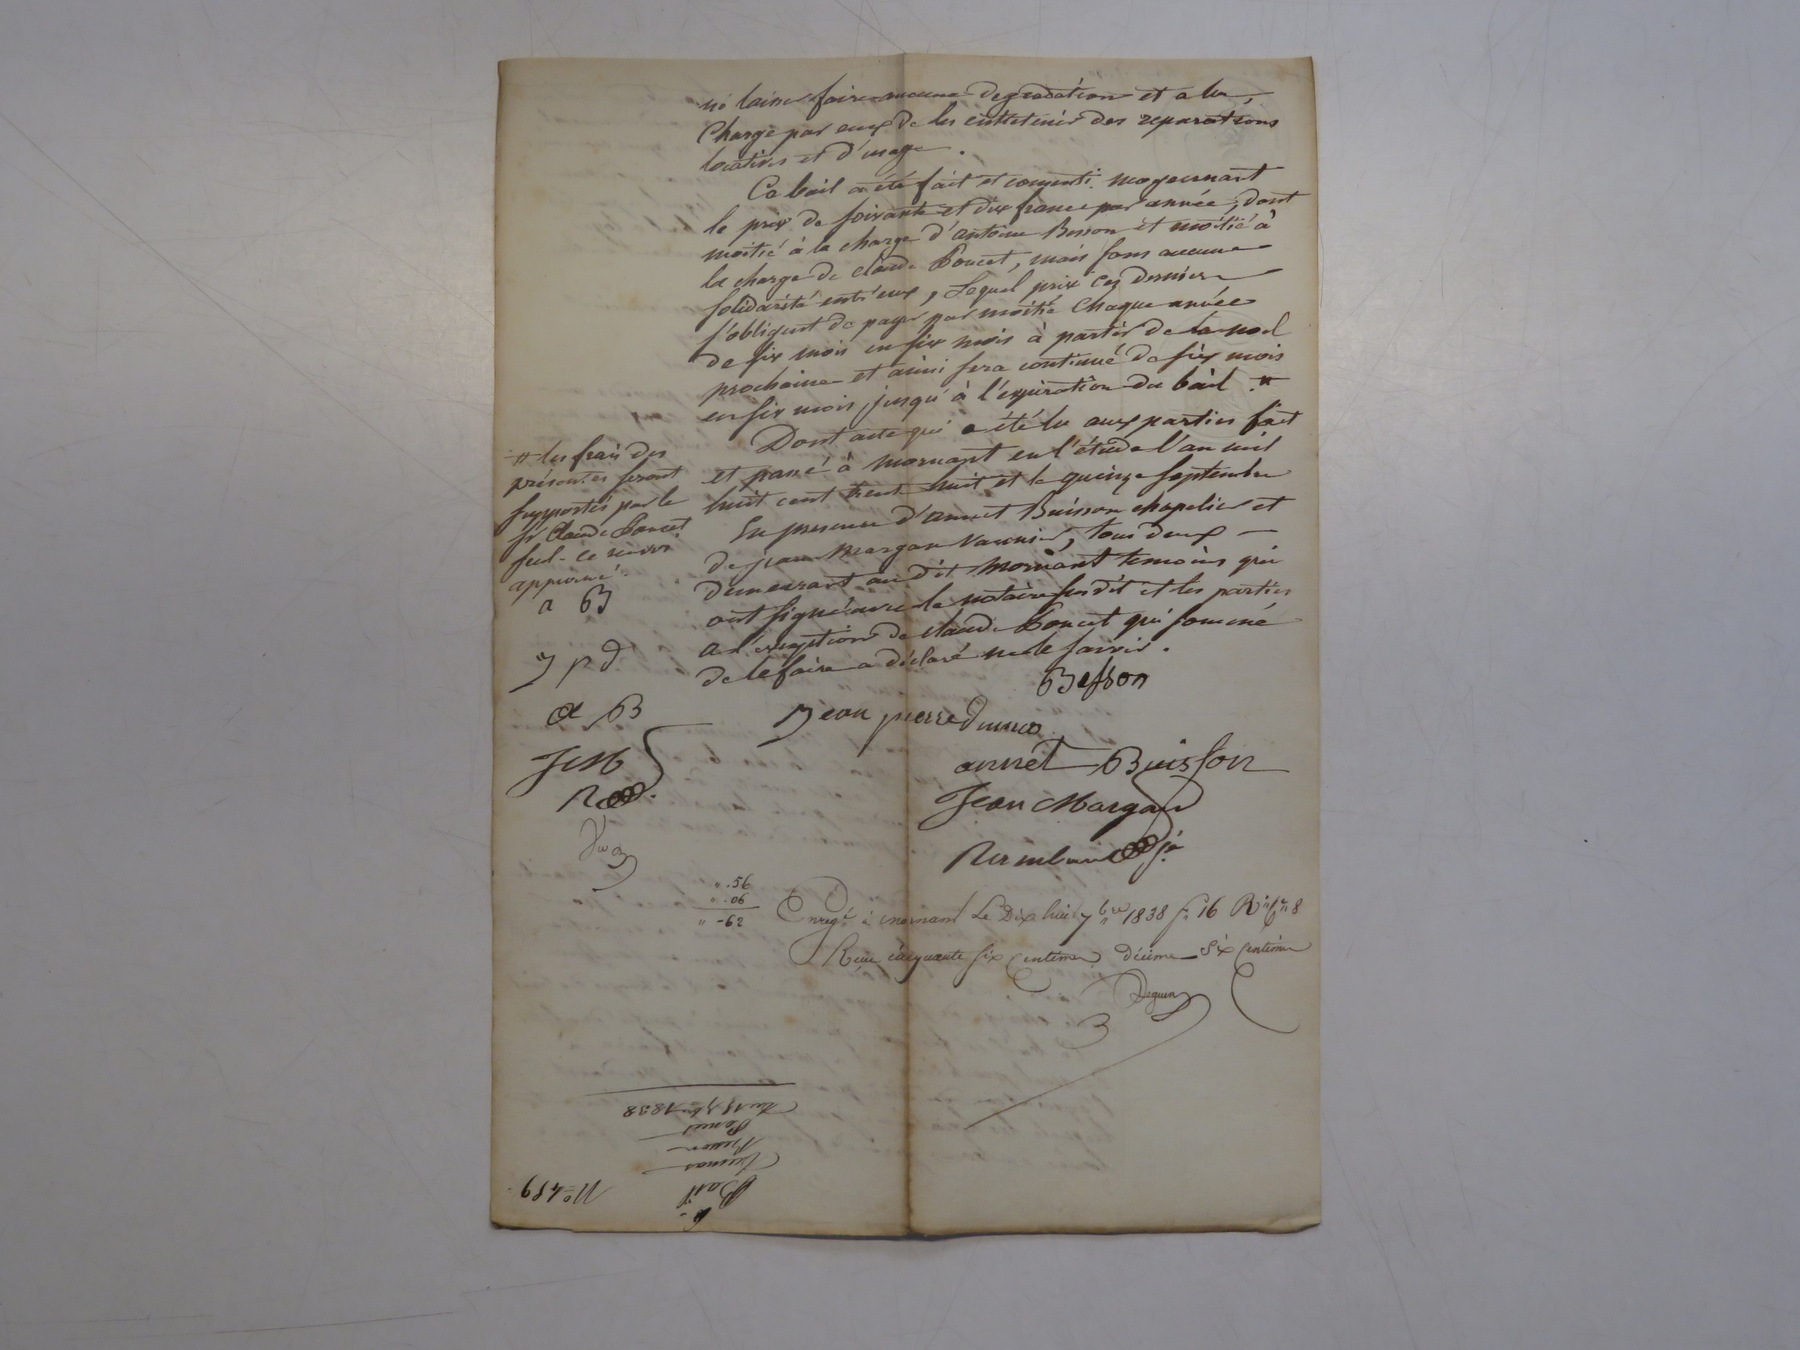 ni laisser faire aucune degradation et a la
charge par eux de les entretenir des reparations
locatives et d'usage.
Ce bail a été fait et consenti moyennant
le prix de soixante et dix francs par année, dont
moitié à la charge d'antoine Besson et moitié à
la charge de claude Poncet, mais sans aucune
solidarité entr'eux, Lequel prix ces derniers
s'obligent de payer par moitié chaque année
de six mois en six mois à partir de la noel
prochaine et ainsi sera continué de six mois
en six mois jusqu'à l'expiration du bail. #
Dont acte qui a été lu aux parties fait
et passé à mornant en l'étude l'an mil
huit cent trente huit et le quinze septembre
En presence d'annet Buisson chapelier et
de jean margan vannier, tous deux
demeurant au dit mornant temoins qui
ont signé avec le notaire susdit et les parties
a l'exception de claude Poncet qui sommé
de le faire a déclaré ne le savoir.
# les frais des
présentes seront
supportés par le
sr Claude Poncet
seul - ce renvoi
approuvé.
a B
J p d
a B
J M
R
Besson
Jean pierre
annet Buisson
Jean Margan
". 56
". 06
" - 62
Enregé à mornant Le Dix huit 7bre 1838 fo 16 Ro Ce 8
Recu cinquante six centimes décime six centimes
6.
Bail
Besson
Poncet
Du 15 7bre 1838
No 489